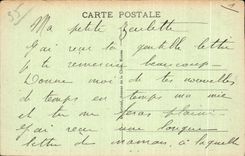 CARTE POSTALE
Ma petite Paulette
J'ai reçu ta gentille lettre
je te remercie beaucoup
Donne moi de tes nouvelles
de temps en temps ma mie
et tu me feras plaisir
J'ai reçu une longue
lettre de maman, à laquelle